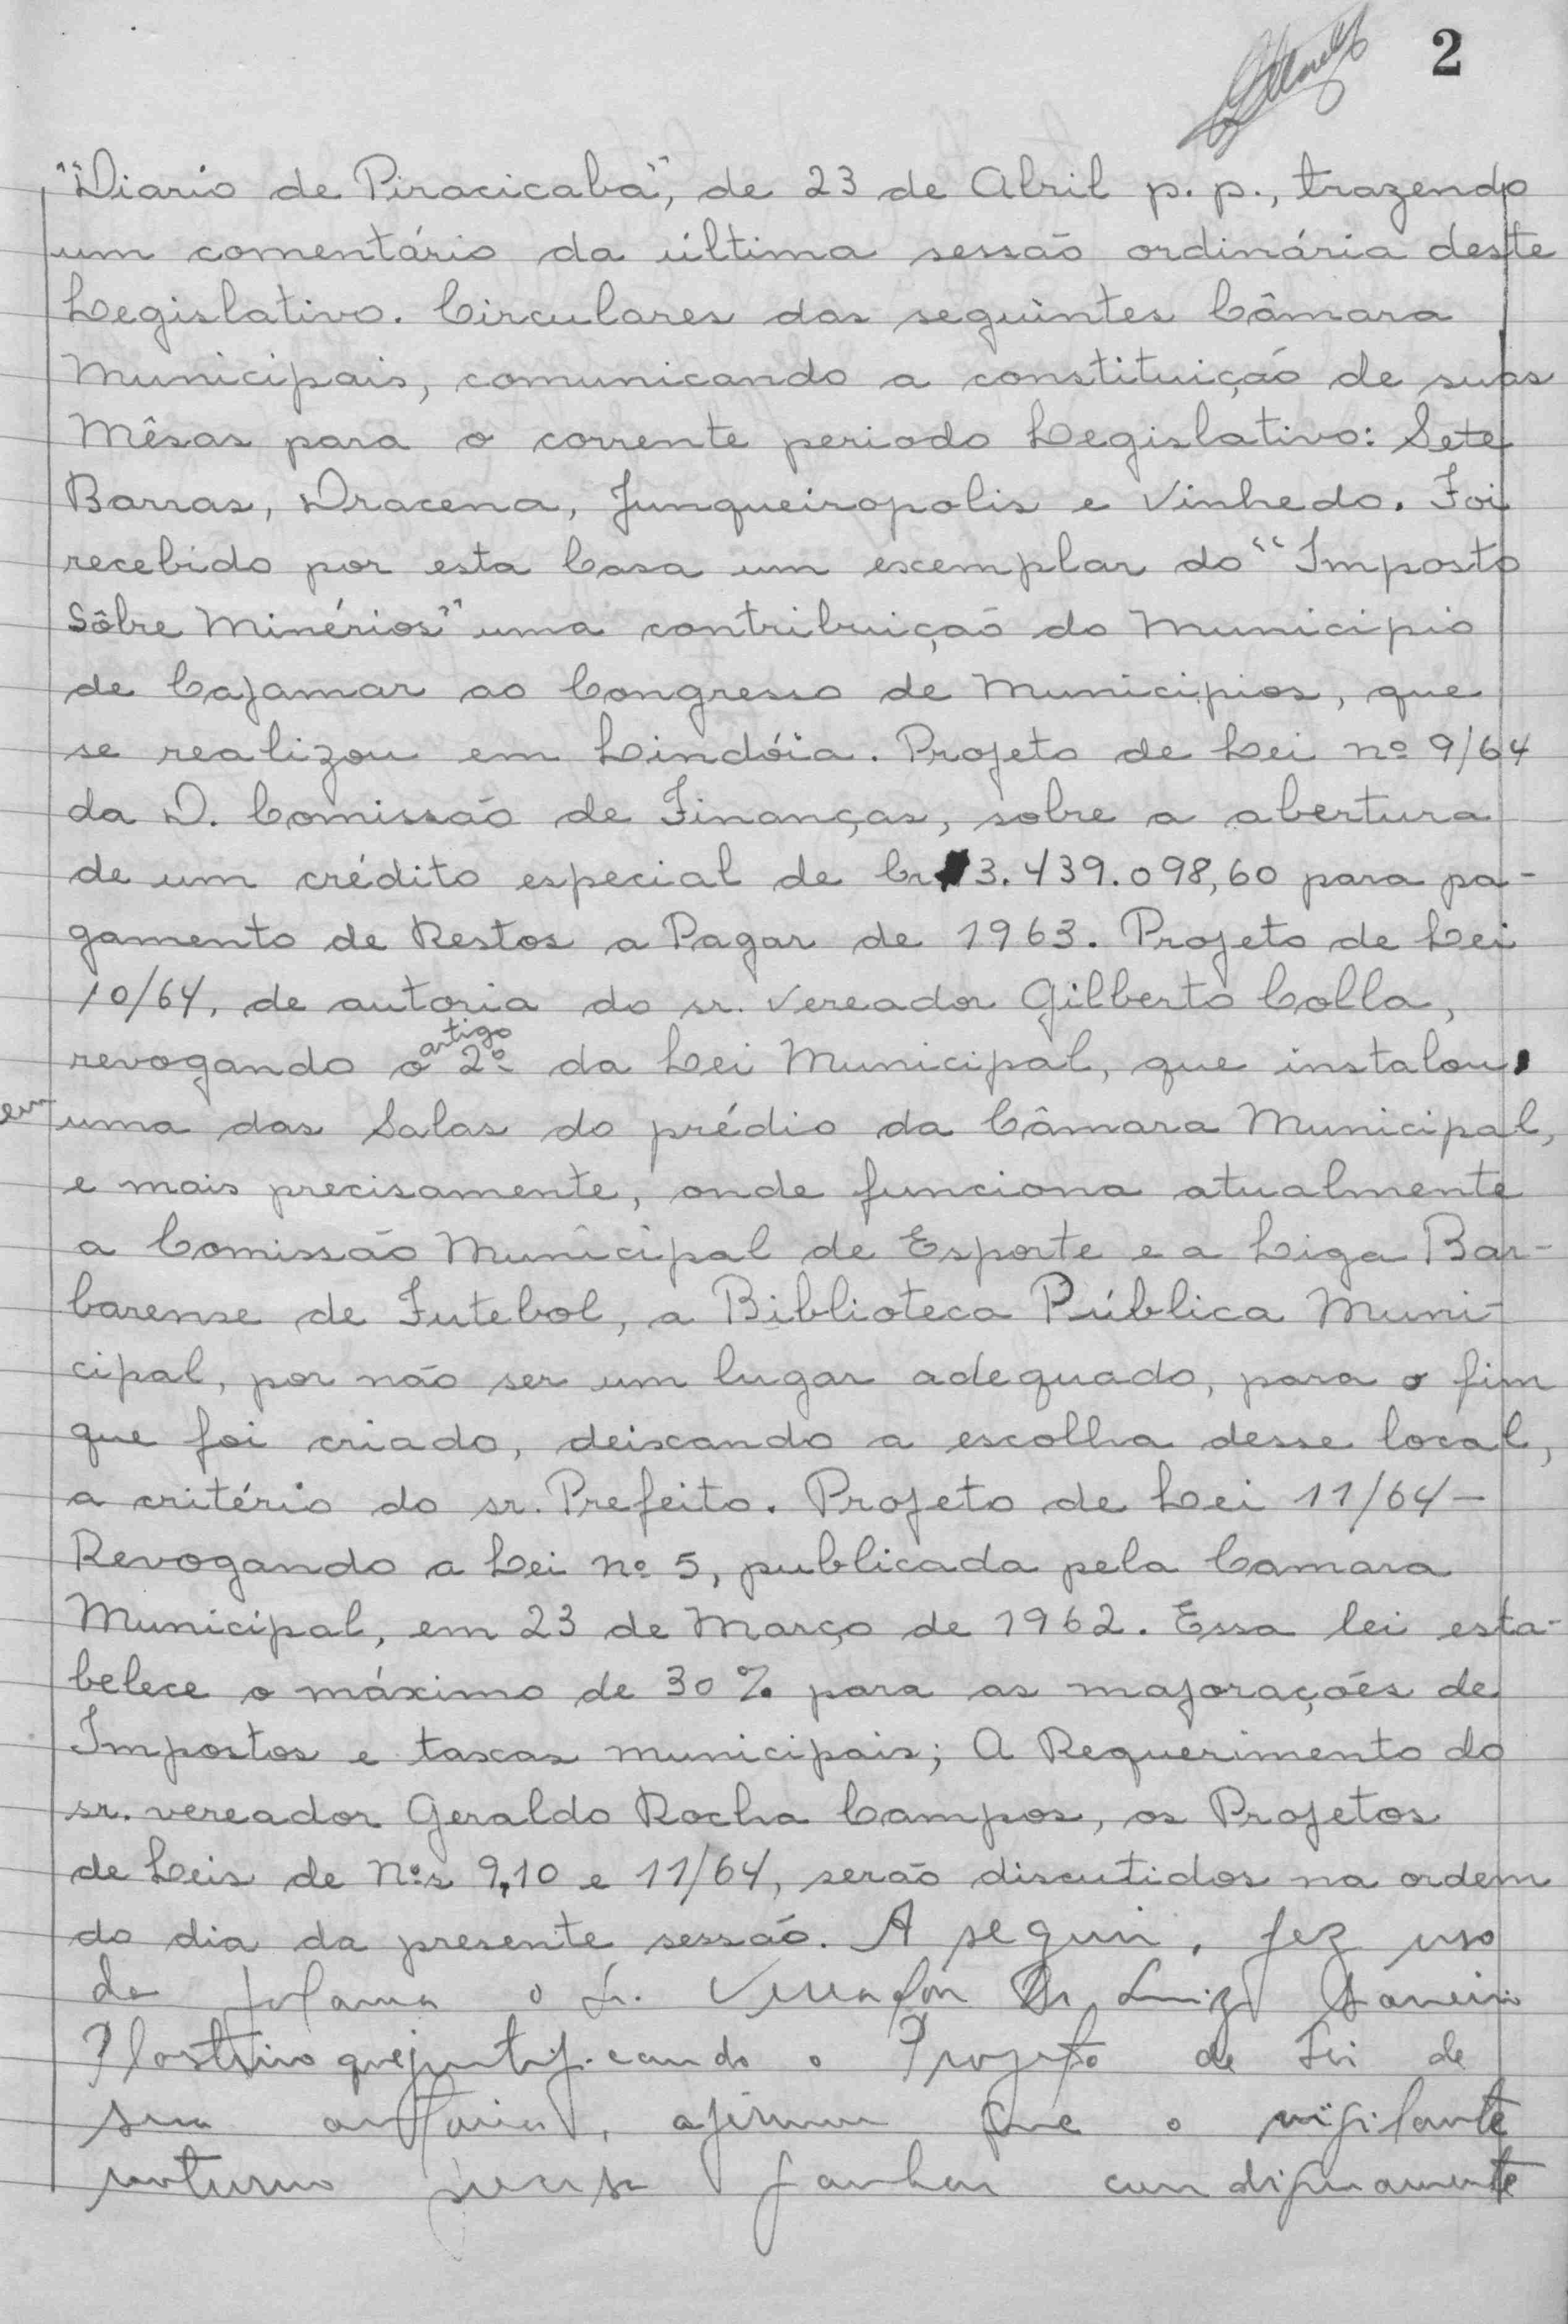 2
"Diario de Piracicaba", de 23 de Abril p. p., trazendo
um comentário da última sessão ordinária deste
Legislativo. Circulares das seguintes Câmara
Municipais, comunicando a constituição de suas
Mêsas para o corrente periodo Legislativo: Sete
Barras, Dracena, Junqueiropolis e Vinhedo. Foi
recebido por esta Casa um exemplar do "Imposto
Sôbre Minérios" uma contribuição do Municipio
de Cajamar ao Congresso de Municipios, que
se realizou em Lindóia. Projeto de Lei nº 9/64
da D. Comissão de Finanças, sobre a abertura
de um crédito especial de Cr$ 3.439.098,60 para pa-
gamento de Restos a Pagar de 1963. Projeto de Lei
10/64, de autoria do sr. Vereador Gilberto Colla,
revogando o artigo 2º da Lei Municipal, que instalou,
em uma das Salas do prédio da Câmara Municipal,
e mais precisamente, onde funciona atualmente
a Comissão Municipal de Esporte e a Liga Bar-
barense de Futebol, a Biblioteca Pública Muni-
cipal, por não ser um lugar adequado, para o fim
que foi criado, deixando a escolha desse local,
a critério do sr. Prefeito. Projeto de Lei 11/64-
Revogando a Lei nº 5, publicada pela Camara
Municipal, em 23 de Março de 1962. Essa lei esta-
belece o máximo de 30% para as majorações de
Impostos e taxas municipais; A Requerimento do
sr. vereador Geraldo Rocha Campos, os Projetos
de Leis de Nºs 9,10 e 11/64, serão discutidos na ordem
do dia da presente sessão. A seguir, fez uso
da palavra o Sr. Vereador Dr. Luiz
o Projeto de Lei de
sua autoria, afirmou que o vigilante
noturno precisa ganhar condignamente